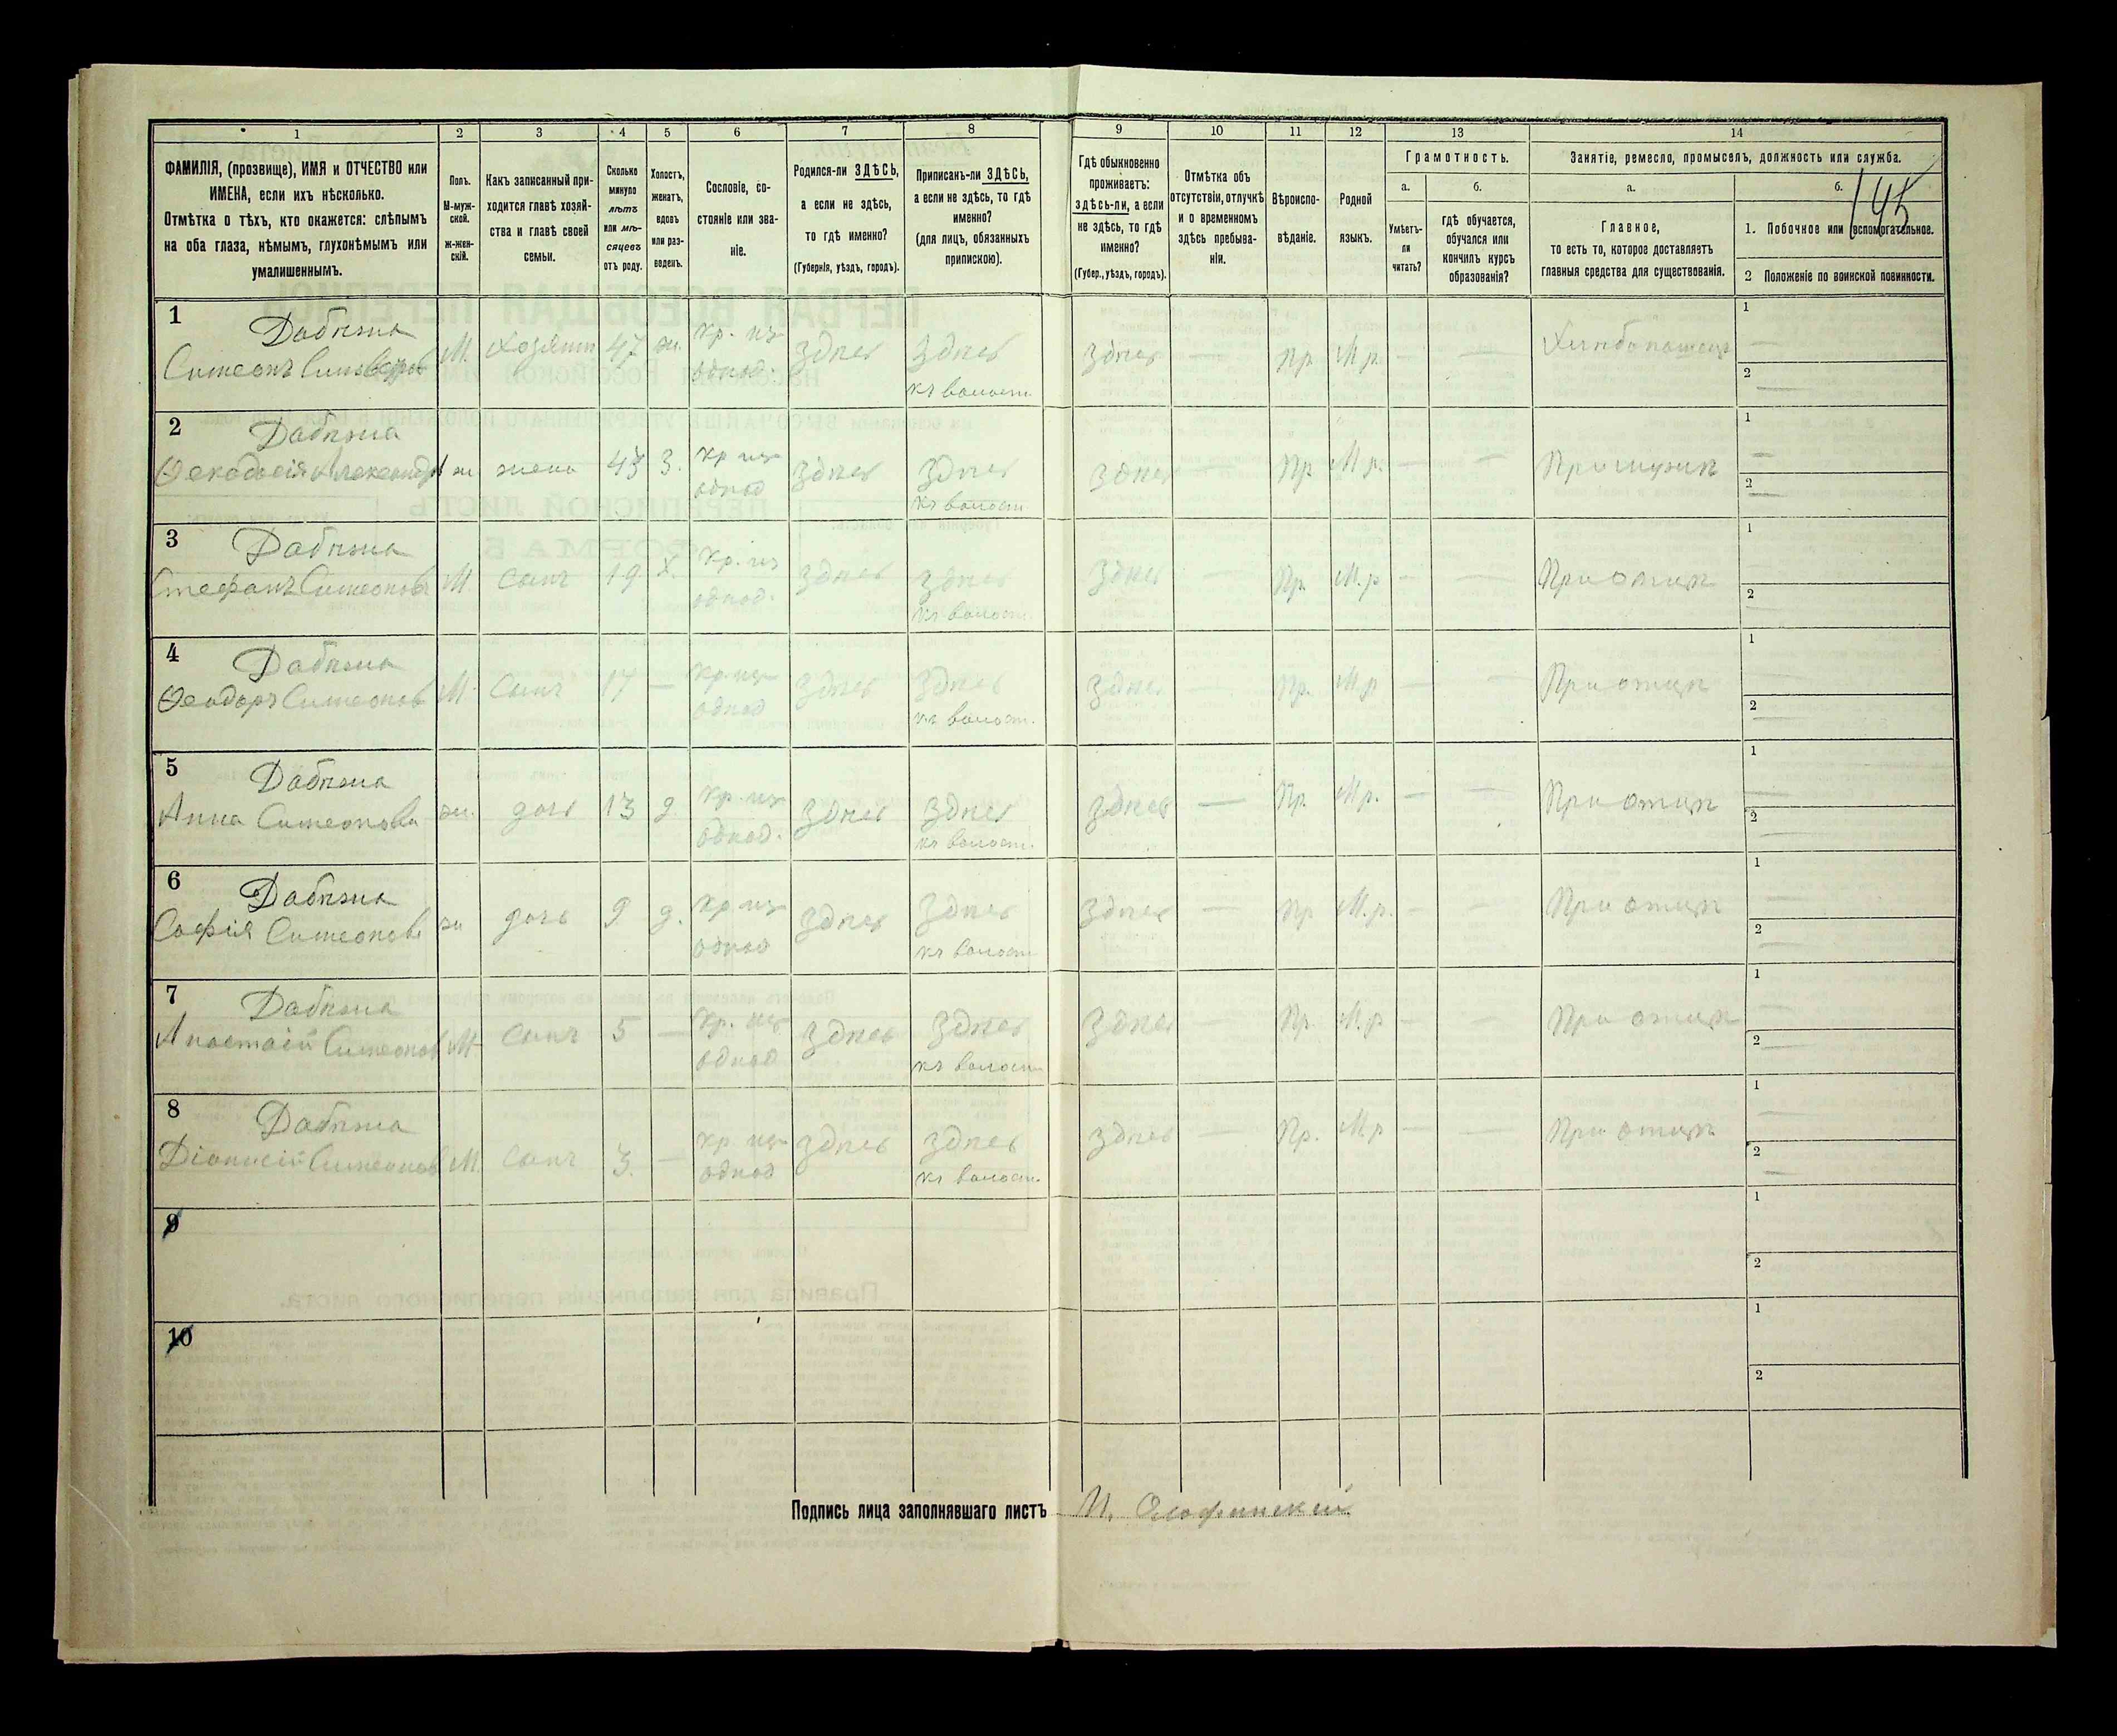 145
1 2 3 4 5 6 7 8 9 10 11 12 13 14
ФАМИЛІЯ, (прозвище), ИМЯ и ОТЧЕСТВО или
ИМЕНА, если ихъ нѣсколько.
Отмѣтка о тѣхъ, кто окажется: слѣпымъ
на оба глаза, нѣмымъ, глухонѣмымъ или
умалишеннымъ.
Полъ.
М-муж-
ской.
ж-жен-
скій.
Какъ записанный при-
ходится главѣ хозяй-
ства и главѣ своей
семьи.
Сколько
минуло
лѣтъ
или мѣ-
сяцевъ
отъ роду.
Холостъ,
женатъ,
вдовъ
или раз-
веденъ.
Сословіе, со-
стояніе или зва-
ніе.
Родился-ли ЗДѢСЬ,
а если не здѣсь,
то гдѣ именно?
(Губернія, уѣздъ, городъ).
Приписанъ-ли ЗДѢСЬ,
а если не здѣсь, то гдѣ
именно?
(для лицъ, обязанныхъ
припискою).
Гдѣ обыкновенно
проживаетъ:
ЗДѢСЬ-ЛИ, а если
не здѣсь, то гдѣ
именно?
(Губер., уѣздъ, городъ).
Отмѣтка объ
отсутствіи, отлучкѣ
и о временномъ
здѣсь пребыва-
ніи.
Вѣроиспо-
вѣданіе.
Родной
языкъ.
Грамотность.
а.
Умѣетъ-
ли
читать?
б.
гдѣ обучается,
обучался или
кончилъ курсъ
образованія?
Занятіе, ремесло, промыселъ, должность или служба.
а.
Главное,
то есть то, которое доставляетъ
главныя средства для существованія.
б.
1. Побочное или вспомогательное.
2 Положеніе по воинской повинности.
1 Дабѣжа
Симеонъ М. Хозяинъ 47 ж. кр. из однод. здѣсь здѣсь къ волост. здѣсь — Пр. М.р. — — Хлѣбопашецъ 1 — 2 —
2 Дабѣжа
Ѳеодосія жена 43 З. кр из однод здѣсь здѣсь къ волост здѣсь — Пр М.р. — — При мужѣ 1 — 2 —
3 Дабѣжа
Стефанъ Симеоновъ М сынъ 19 Х. кр. из однод. здѣсь здѣсь къ волост. здѣсь — Пр. М.р — — При отцѣ 1 — 2 —
4 Дабѣжа
Ѳеодоръ Симеонов М. сынъ 17 — кр. из однод здѣсь здѣсь къ волост. здѣсь — Пр. М.р — — При отцѣ 1 — 2 —
5 Дабѣжа
Анна Симеонова ж. дочь 13 д. кр. из однод. здѣсь здѣсь къ волост. здѣсь — Пр. М.р. — — При отцѣ 1 — 2 —
6 Дабѣжа
Софія Симеонова ж дочь 9 д. кр из однод здѣсь здѣсь къ волост здѣсь — Пр М.р. — — При отцѣ 1 — 2 —
7 Дабѣжа
Анастасій Симеонов М. сынъ 5 — кр. из однод здѣсь здѣсь къ волост здѣсь — Пр. М.р — — При отцѣ 1 — 2 —
8 Дабѣжа
Діонисій Симеонов М. сынъ 3. — кр из однод здѣсь здѣсь къ волост. здѣсь — Пр. М.р — — При отцѣ 1 — 2 —
9 1 2
10 1 2
Подпись лица заполнявшаго листъ